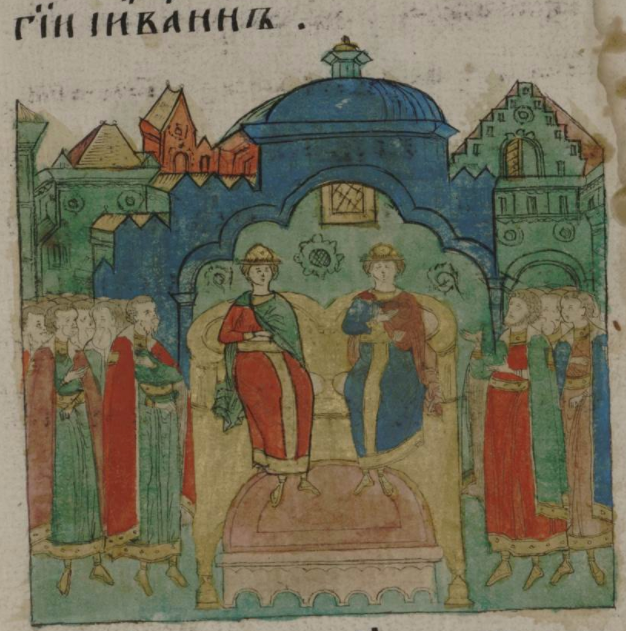 гїи іиваннъ .